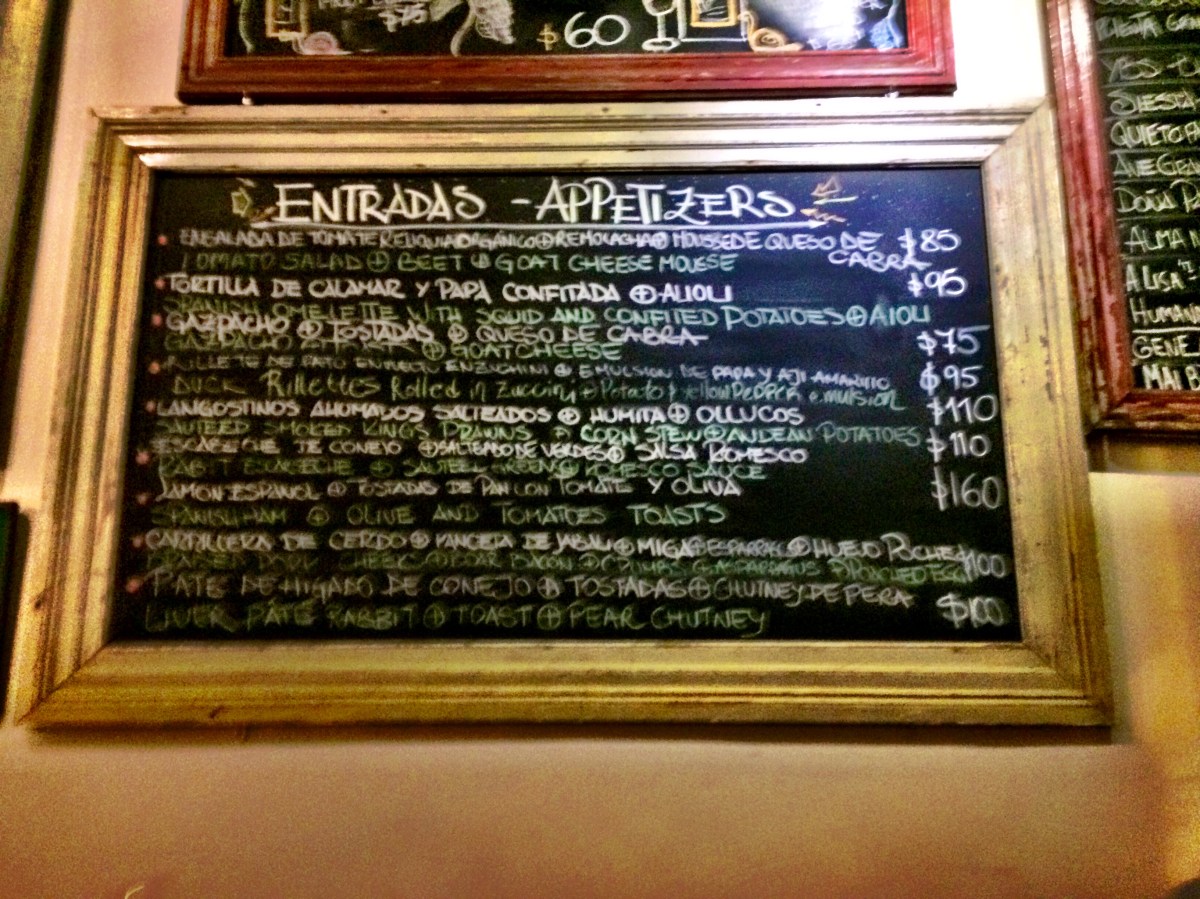 $75
$60
ENTRADAS - APPETIZERS
ENSALADA DE TOMATE RELIQUIA ORGÁNICO + REMOLACHA + MOUSSE DE QUESO DE CABRA $85
TOMATO SALAD + BEET + GOAT CHEESE MOUSE
TORTILLA DE CALAMAR Y PAPA CONFITADA + ALIOLI $95
SPANISH OMELETTE WITH SQUID AND CONFITED POTATOES + AIOLI
GAZPACHO + TOSTADAS + QUESO DE CABRA $75
GAZPACHO + TOASTS + GOAT CHEESE
RILLETE DE PATO EN ZUCHINI + EMULSION DE PAPA Y AJI AMARILLO $95
DUCK Rillettes Rolled in Zuccini + Potato yellow Pepper emulsion
LANGOSTINOS AHUMADOS SALTEADOS + HUMITA + OLLUCOS $110
SAUTEED SMOKED KINGS PRAWNS + CORN STEW + ANDEAN POTATOES
ESCABECHE DE CONEJO + SALTEADO DE VERDES + SALSA ROMESCO $110
RABIT ESCABECHE + SAUTEED GREENS + ROMESCO SAUCE
JAMON ESPAÑOL + TOSTADAS DE PAN CON TOMATE Y OLIVA $160
SPANISH HAM + OLIVE AND TOMATOES TOASTS
CARRILLERA DE CERDO + PANCETA DE JABALI + MIGAS + ESPARRAGOS + HUEVO POCHE $100
CHEEK + BOAR BACON + CRUMBS + ASPARRAGUS + POACHED EGG
PATE DE HIGADO DE CONEJO + TOSTADAS + CHUTNEY DE PERA $100
LIVER PÂTÉ RABBIT + TOAST + PEAR CHUTNEY
SIESTA
QUIETO
AVE GE
DOÑA P
ALMA
ALISA
HUMAN
GENE
MAI